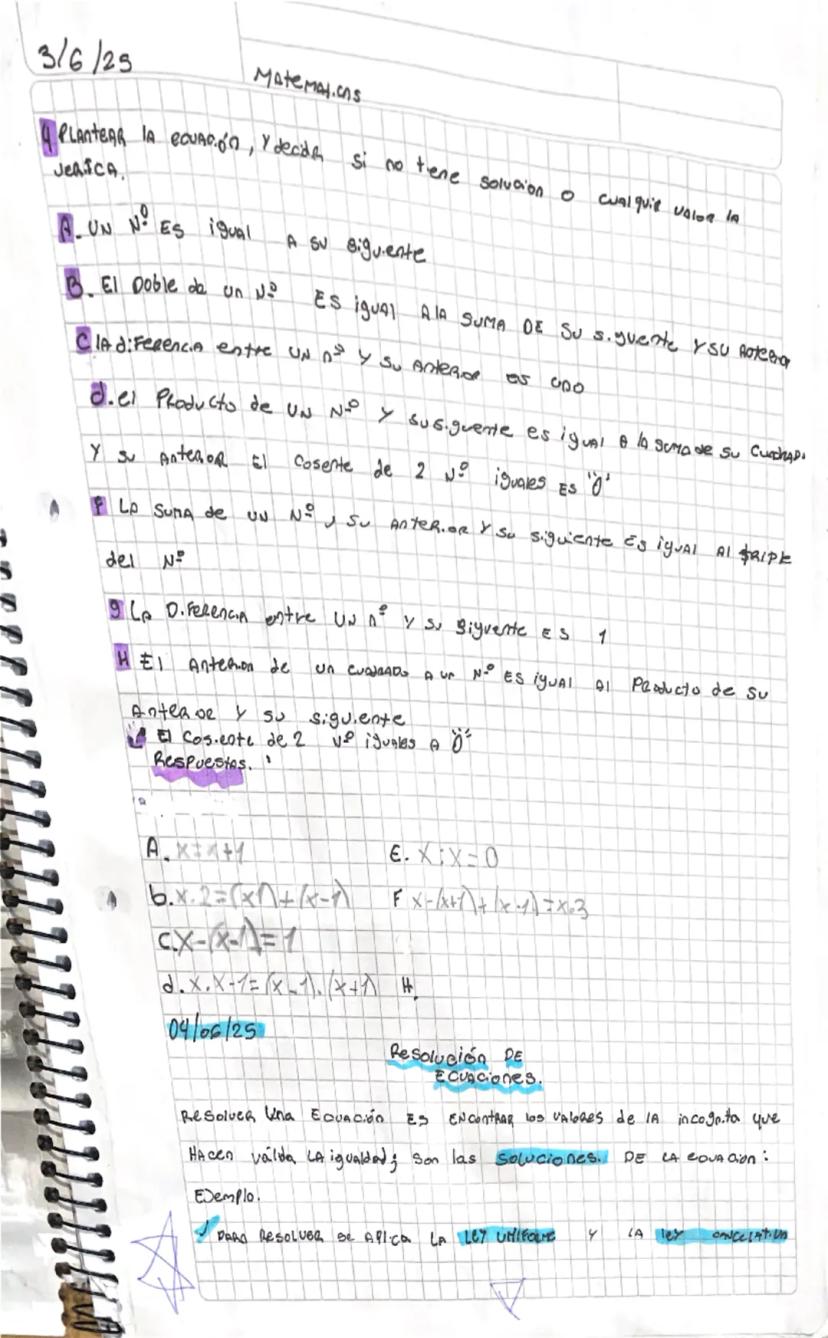 3/6/25
Matematicas
4 Plantear la ecuación, y decidir si no tiene solucion o cualquie valor la
verifica.
A. Un Nº es igual a su siguiente
B. El doble de un Nº es igual a la suma de su siguente y su anterior
C la diferencia entre un nº y su anterior es uno
d. el Producto de un Nº y su siguente es igual a la suma de su cuadrado
y su anterior El cosente de 2 Nº iguales es "0"
F La suma de un Nº, su anterior y su siguiente es igual al triple
del Nº
g La Diferencia entre un nº y su siguente es 1
H El anterior de un cuadrado a un Nº es igual al Producto de su
anterior y su siguiente
El cosiente de 2 Nº iguales a "0"
Respuestas.
A. x=x+1
E. x:x=0
b. x.2=(x1)+(x-1)
F x-(x+1)+(x-1)=x.3
C. x-(x-1)=1
d. x.x-1=(x-1).(x+1)
H.
04/06/25
Resolución de
Ecuaciones.
Resolver una ecuación es encontrar los valores de la incognita que
hacen válida la igualdad; son las soluciones. de la ecuacion:
Ejemplo.
Para resolver se aplica la ley uniforme y la ley cancelativa